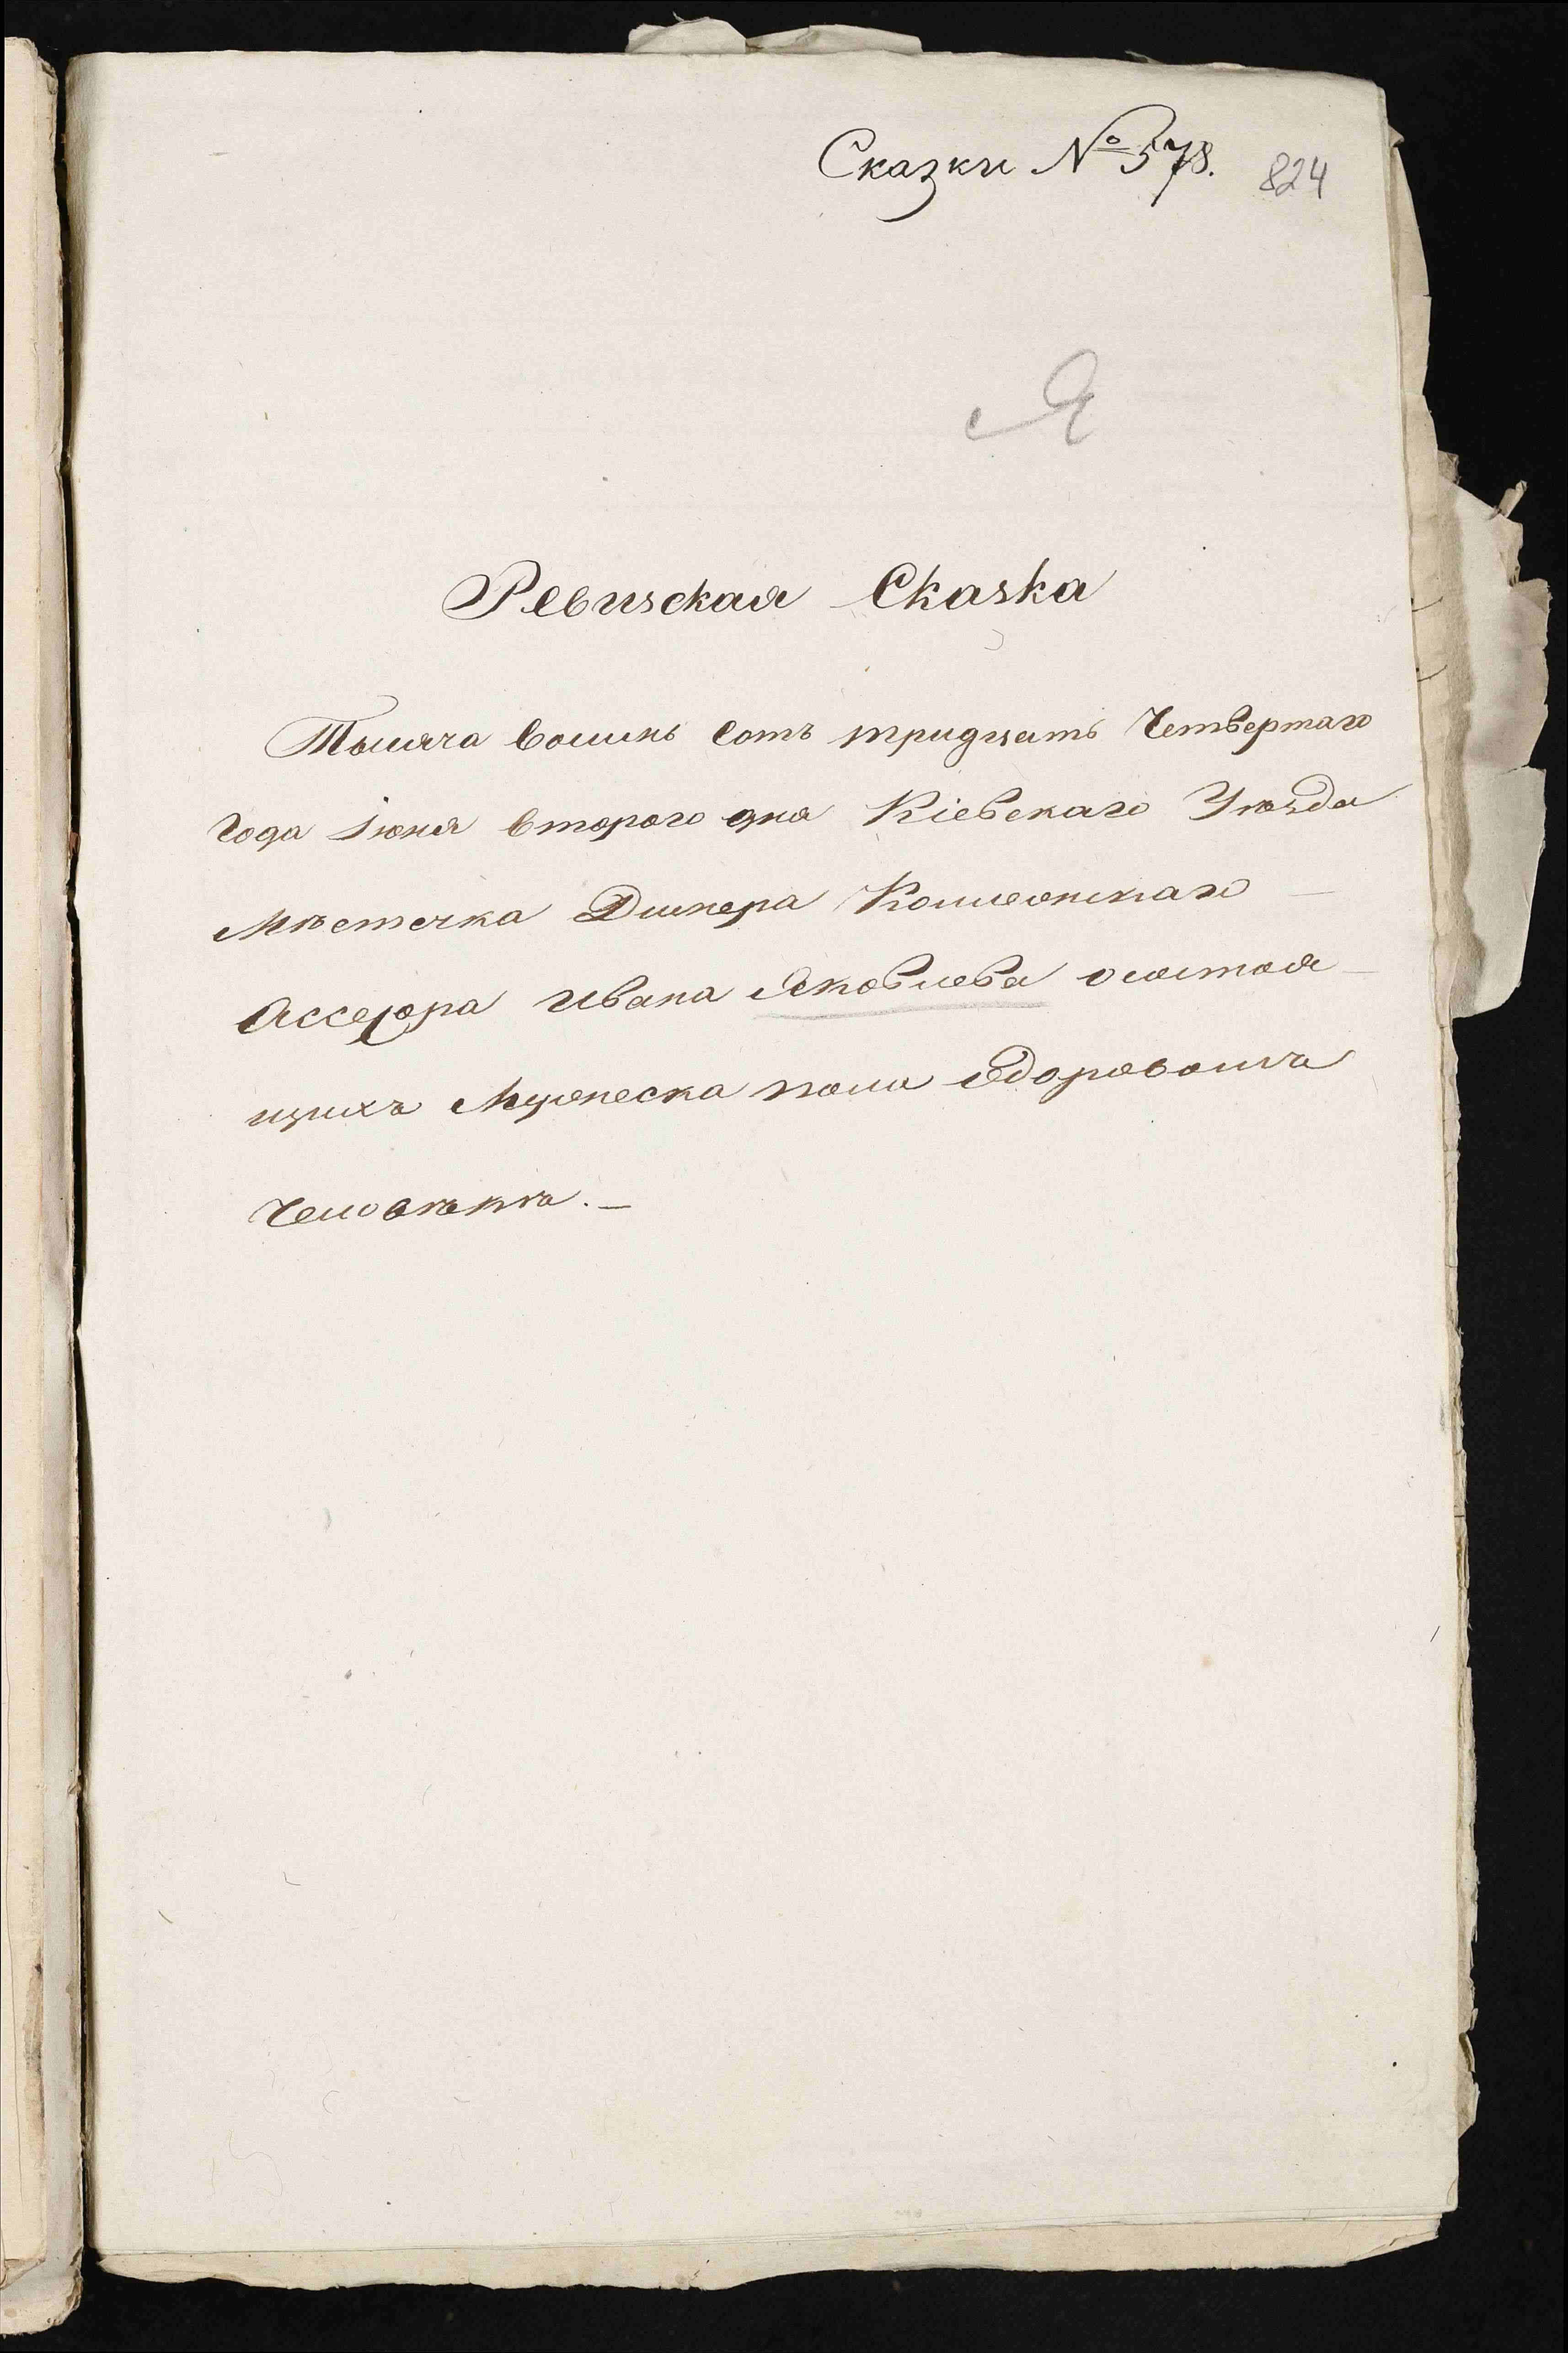 Сказки № 578. 824
Я
Ревизская Сказка
Тысяча восимь сотъ тридцать Четвертаго
Года Іюня второго дня Кіевскаго Уѣзда
Мѣстечка Дымера Коллежскаго
Ассесора Ивана Яковлева о состоя
щихъ Мужеска пола Дворовыхъ
Человѣкъ. —